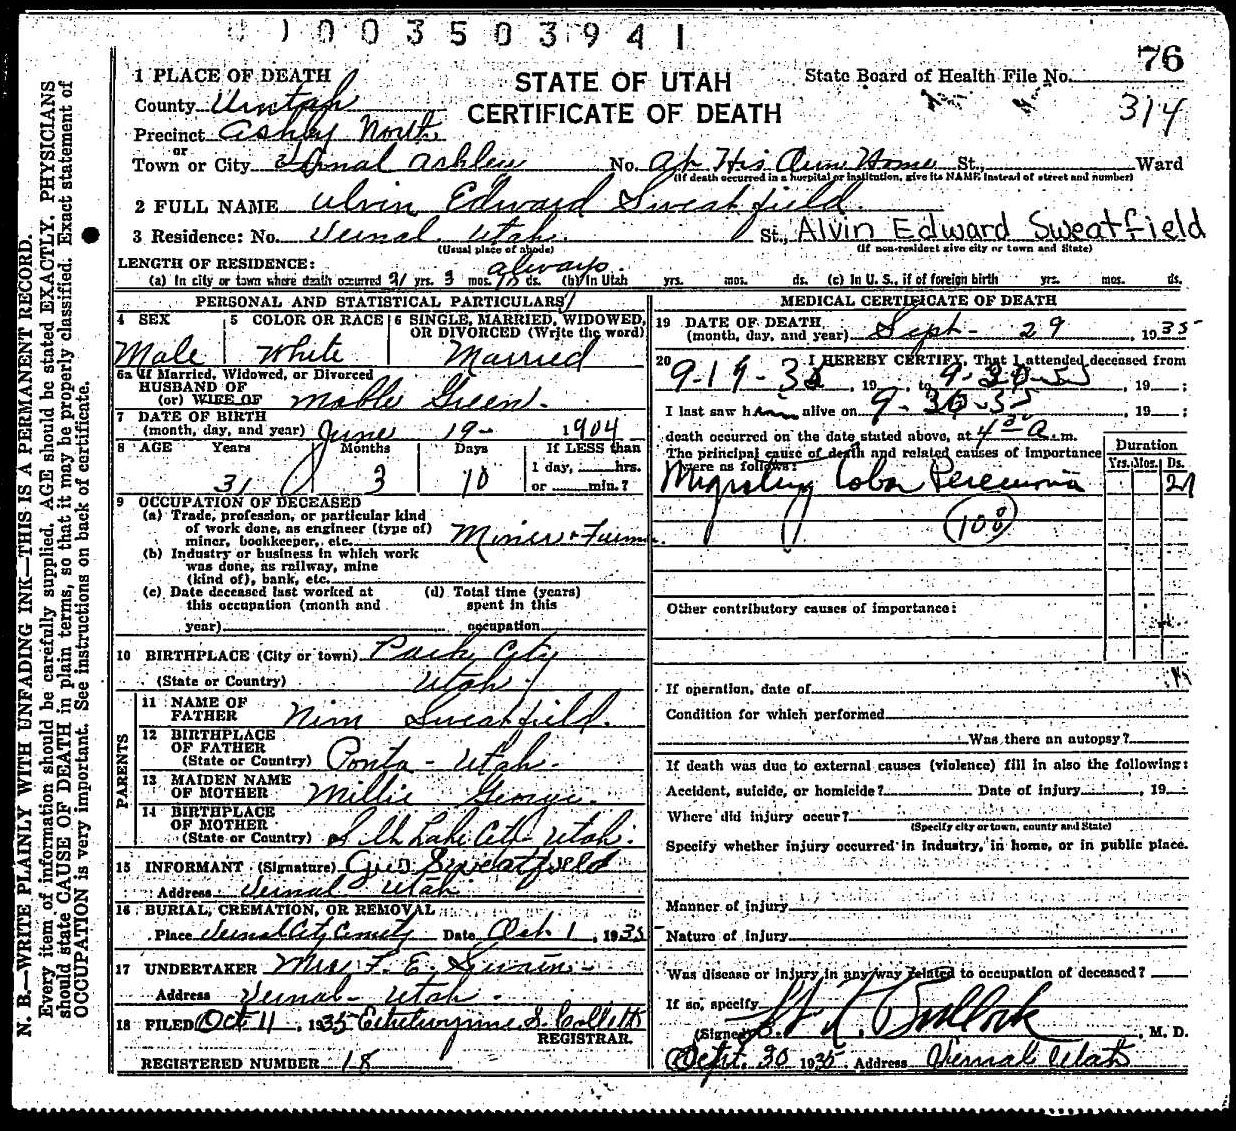 1003503941
76
1 PLACE OF DEATH
STATE OF UTAH
State Board of Health File No.
County Uintah
CERTIFICATE OF DEATH
314
Precinct Ashley North
or
Town or City Vernal Ashley No. At His Own Home St., Ward
(If death occurred in a hospital or institution, give its NAME instead of street and number)
2 FULL NAME Alvin Edward Sweatfield
3 Residence: No. Vernal Utah. St., Alvin Edward Sweatfield
(Usual place of abode) (If non-resident give city or town and State)
LENGTH OF RESIDENCE: always.
(a) In city or town where death occurred 31 yrs. 3 mos. 10 ds. (b) In Utah yrs. mos. ds. (c) in U. S., if of foreign birth yrs. mos. ds.
PERSONAL AND STATISTICAL PARTICULARS
4 SEX 5 COLOR OR RACE 6 SINGLE, MARRIED, WIDOWED, OR DIVORCED (Write the word)
Male White Married
6a If Married, Widowed, or Divorced
HUSBAND OF
(or) WIFE OF Mable Green.
7 DATE OF BIRTH
(month, day, and year) June 19- 1904
8 AGE Years Months Days If LESS than
1 day, hrs.
31 3 10 or min.?
9 OCCUPATION OF DECEASED
(a) Trade, profession, or particular kind
of work done, as engineer (type of)
miner, bookkeeper, etc. Miner +
(b) Industry or business in which work
was done, as railway, mine
(kind of), bank, etc.
(c) Date deceased last worked at (d) Total time (years)
this occupation (month and spent in this
year) occupation
10 BIRTHPLACE (City or town) Park City
(State or Country) Utah
PARENTS
11 NAME OF
FATHER Nim Sweatfield.
12 BIRTHPLACE
OF FATHER
(State or Country) Utah-
13 MAIDEN NAME
OF MOTHER Millie George.
14 BIRTHPLACE
OF MOTHER
(State or Country) Salt Lake City Utah.
15 INFORMANT (Signature) Sweatfield
Address Vernal Utah
16 BURIAL, CREMATION, OR REMOVAL
Place Vernal City Date Oct 1, 1935
17 UNDERTAKER Mrs F. E. Swain-
Address Vernal- Utah-
18 FILED Oct 11, 1935 Ethelwynne S. Collett
REGISTRAR.
REGISTERED NUMBER 18
MEDICAL CERTIFICATE OF DEATH
19 DATE OF DEATH
(month, day, and year) Sept- 29 1935
20 I HEREBY CERTIFY, That I attended deceased from
9-19-35, 19 , to 9- -35, 19 ;
I last saw him alive on 9-30-35, 19 ;
death occurred on the date stated above, at 4 30 A.m.
The principal cause of death and related causes of importance
were as follows:
Duration
Yrs. Mos. Ds.
Migrating Lobar Pneumonia 21
108
Other contributory causes of importance:
If operation, date of
Condition for which performed
Was there an autopsy?
If death was due to external causes (violence) fill in also the following:
Accident, suicide, or homicide? Date of injury , 19
Where did injury occur?
(Specify city or town, county and State)
Specify whether injury occurred in industry, in home, or in public place.
Manner of injury
Nature of injury
Was disease or injury in any way related to occupation of deceased?
If so, specify
(Signed) Bullock, M. D.
Sept. 30 1935. Address Vernal Utah
N. B.—WRITE PLAINLY WITH UNFADING INK—THIS IS A PERMANENT RECORD.
Every item of information should be carefully supplied. AGE should be stated EXACTLY. PHYSICIANS
should state CAUSE OF DEATH in plain terms, so that it may be properly classified. Exact statement of
OCCUPATION is very important. See instructions on back of certificate.